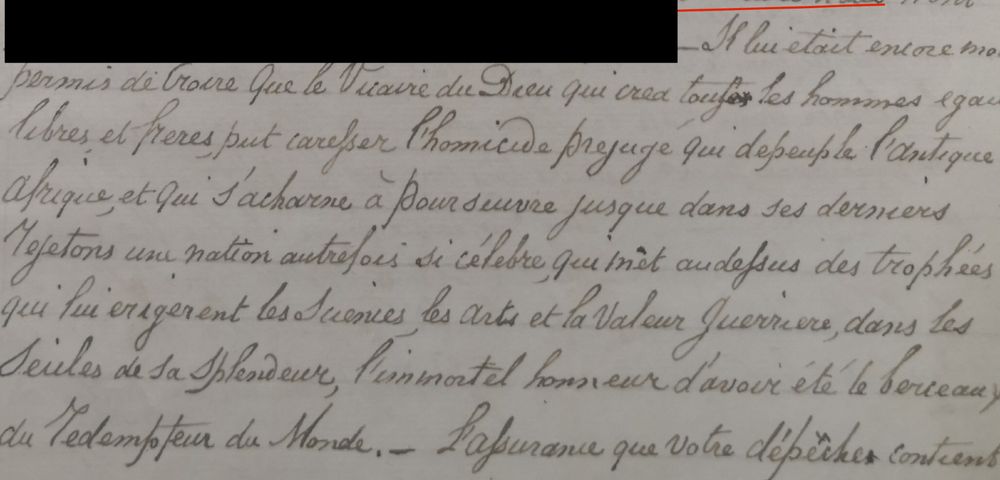 — Il lui etait encore
permis de Croire Que le Vicaire du Dieu qui crea tous les hommes egau
libres, et freres, put caresser l'homicide prejugé qui depeuple l'antique
afrique, et Qui s'acharne à poursuivre jusque dans ses derniers
Rejetons une nation autrefois si célebre, qui met audessus des trophées
qui lui erigerent les Sciences, les Arts et la Valeur Guerriere, dans les
Seicles de sa Splendeur, l'immortel honneur d'avoir été le berceau
du Redempteur du Monde. — L'assurance que votre dépêche contient